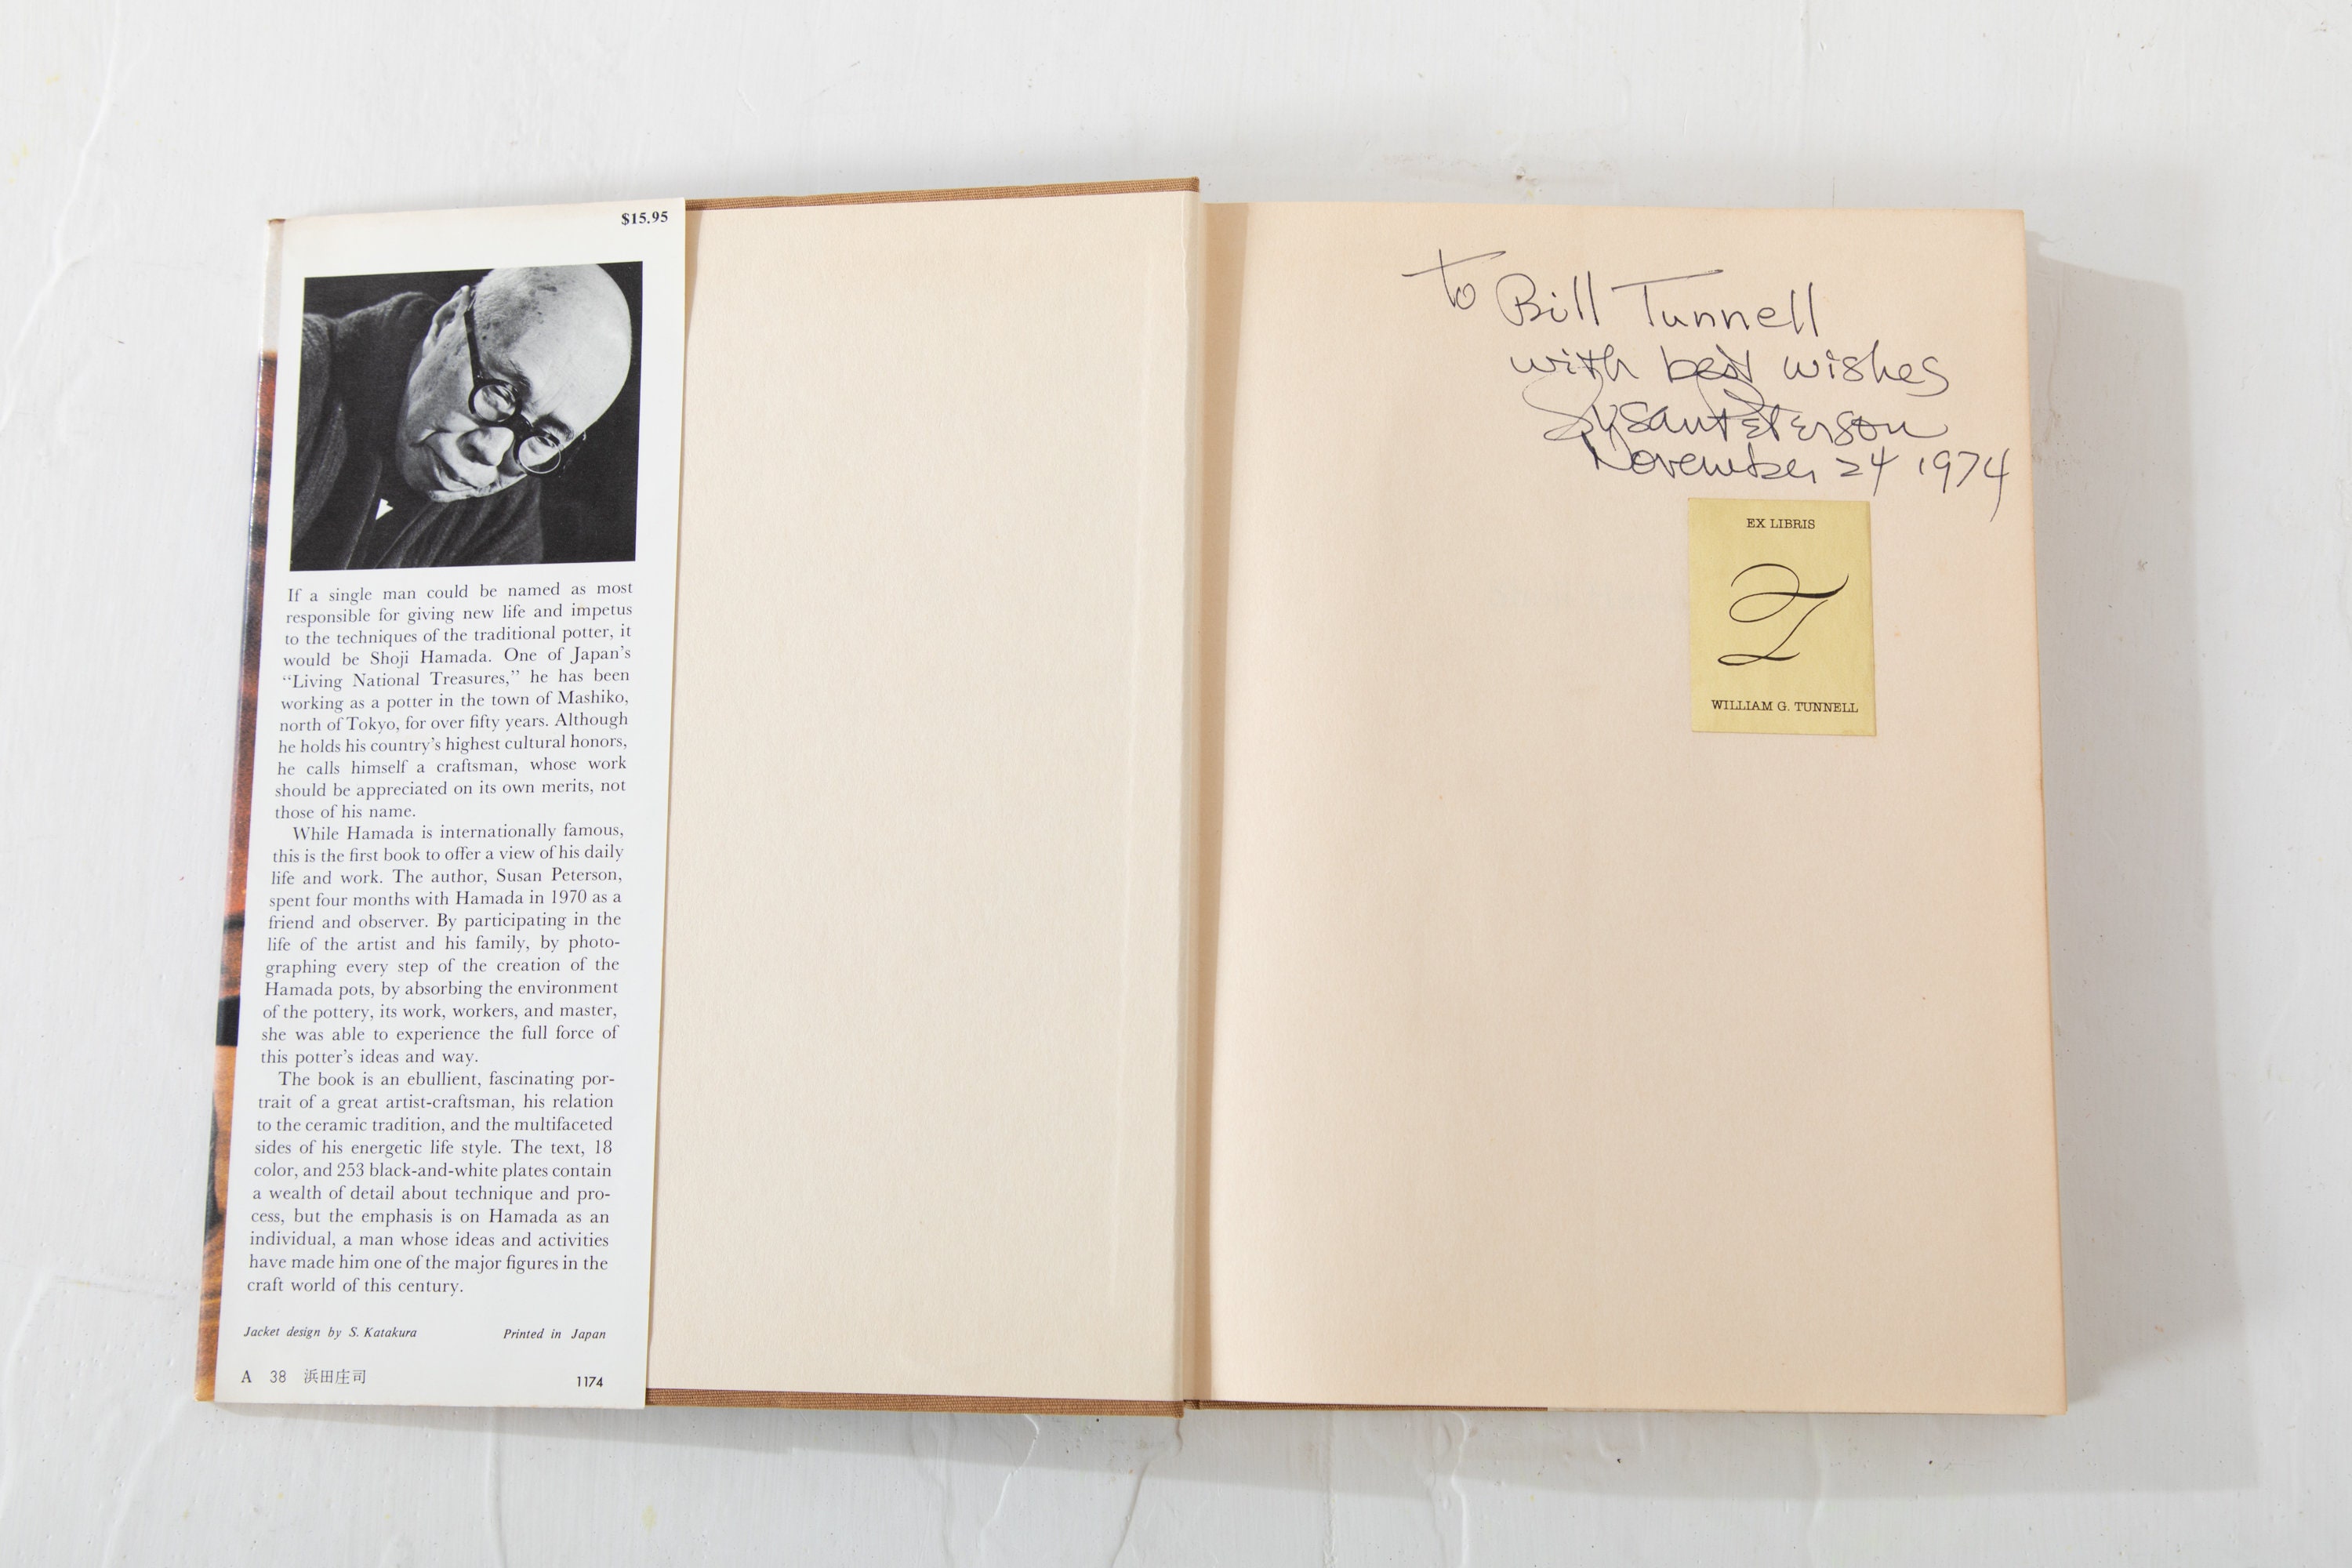 $15.95
If a single man could be named as most
responsible for giving new life and impetus
to the techniques of the traditional potter, it
would be Shoji Hamada. One of Japan's
“Living National Treasures,” he has been
working as a potter in the town of Mashiko,
north of Tokyo, for over fifty years. Although
he holds his country's highest cultural honors,
he calls himself a craftsman, whose work
should be appreciated on its own merits, not
those of his name.
While Hamada is internationally famous,
this is the first book to offer a view of his daily
life and work. The author, Susan Peterson,
spent four months with Hamada in 1970 as a
friend and observer. By participating in the
life of the artist and his family, by photo-
graphing every step of the creation of the
Hamada pots, by absorbing the environment
of the pottery, its work, workers, and master,
she was able to experience the full force of
this potter's ideas and way.
The book is an ebullient, fascinating por-
trait of a great artist-craftsman, his relation
to the ceramic tradition, and the multifaceted
sides of his energetic life style. The text, 18
color, and 253 black-and-white plates contain
a wealth of detail about technique and pro-
cess, but the emphasis is on Hamada as an
individual, a man whose ideas and activities
have made him one of the major figures in the
craft world of this century.
Jacket design by S. Katakura Printed in Japan
A 38 浜田庄司 1174
to Bill Tunnell
with best wishes
Susan Peterson
November 24 1974
EX LIBRIS
T
WILLIAM G. TUNNELL